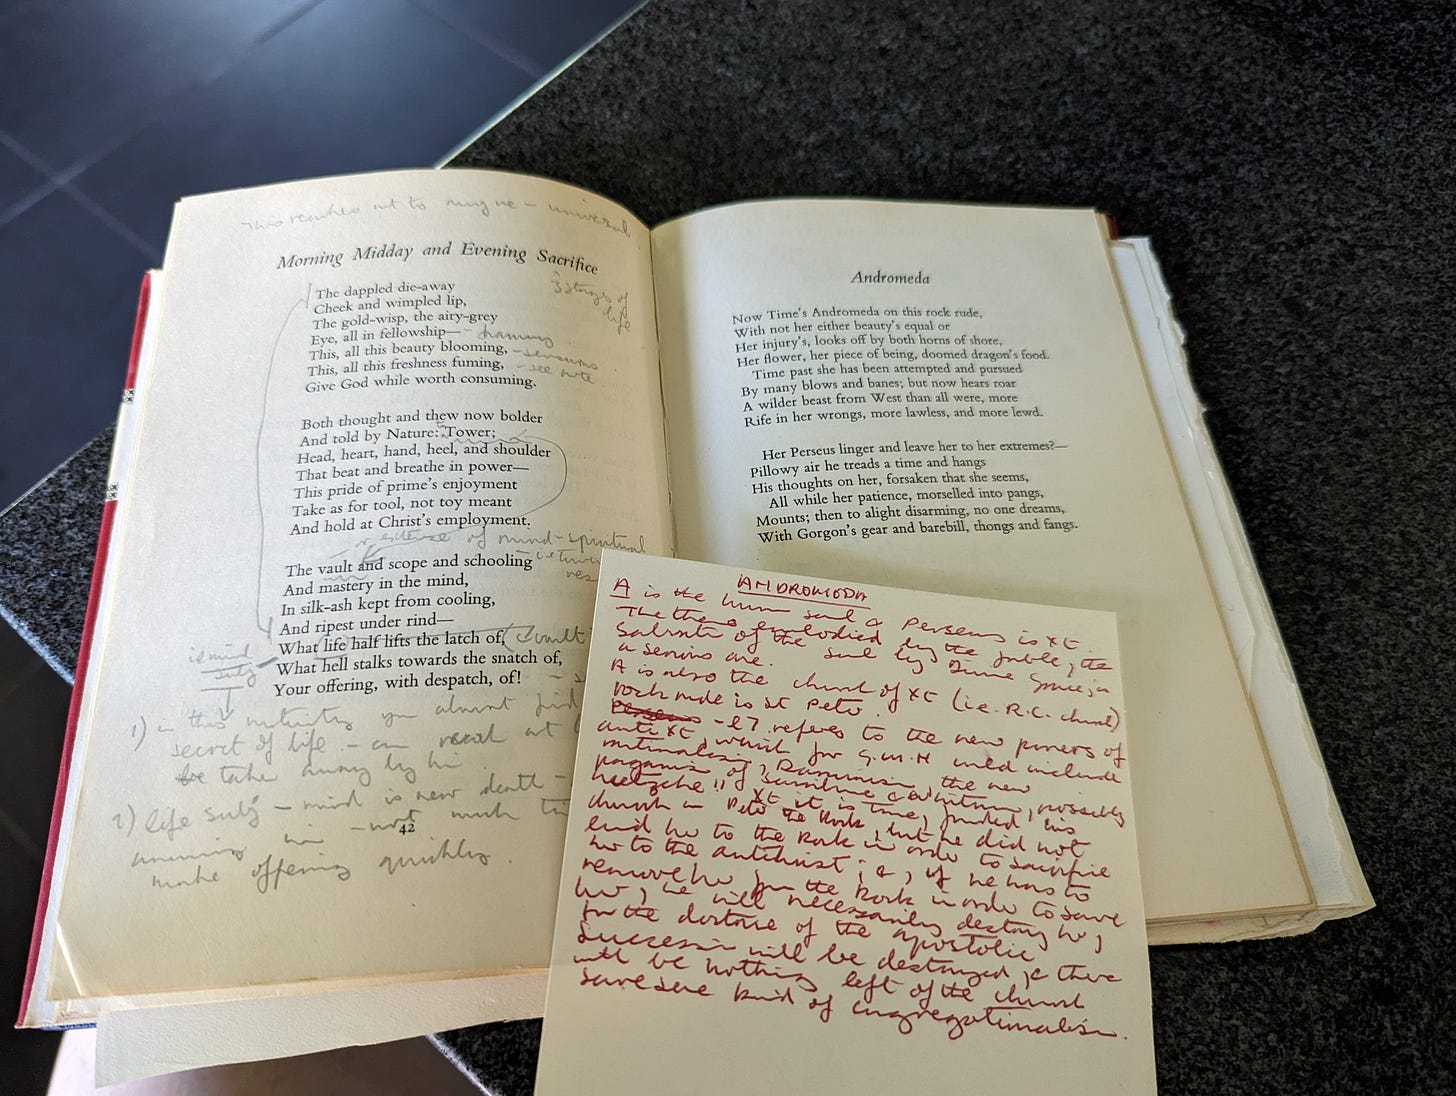 This reaches out to
Morning Midday and Evening Sacrifice
3 stages of
life
The dappled die-away
Cheek and wimpled lip,
The gold-wisp, the airy-grey
Eye, all in fellowship—
This, all this beauty blooming, - sensuous
This, all this freshness fuming, - see note
Give God while worth consuming.
Both thought and thew now bolder
And told by Nature: Tower;
Head, heart, hand, heel, and shoulder
That beat and breathe in power—
This pride of prime's enjoyment
Take as for tool, not toy meant
And hold at Christ's employment.
of mind - spiritual
The vault and scope and schooling
And mastery in the mind,
In silk-ash kept from cooling,
And ripest under rind—
What life half lifts the latch of,
What hell stalks towards the snatch of,
Your offering, with despatch, of!
1) in this maturity you almost find
secret of life - can at
be taken away by him
2) life - mind is near death -
- not much
make offering quickly.
42
Andromeda
Now Time's Andromeda on this rock rude,
With not her either beauty's equal or
Her injury's, looks off by both horns of shore,
Her flower, her piece of being, doomed dragon's food.
Time past she has been attempted and pursued
By many blows and banes; but now hears roar
A wilder beast from West than all were, more
Rife in her wrongs, more lawless, and more lewd.
Her Perseus linger and leave her to her extremes?—
Pillowy air he treads a time and hangs
His thoughts on her, forsaken that she seems,
All while her patience, morselled into pangs,
Mounts; then to alight disarming, no one dreams,
With Gorgon's gear and barebill, thongs and fangs.
ANDROMEDA
A is the human soul & Perseus is Xt.
The theme embodied by the fable, the
Salvation of the soul by Divine Grace, is
a serious one.
A is also the church of Xt (i.e. R.C. church)
rock rude is St Peter.
- l 7 refers to the new powers of
anti Xt, which for G.M.H would include
rationalism, Darwinism, the new
paganism of Swinburne & Whitman, possibly
Nietzsche!! Xt it is true, founded his
church on Peter the Rock, but he did not
bind her to the Rock in order to sacrifice
her to the antichrist; &, if he has to
remove her from the Rock in order to save
her, he will necessarily destroy her,
for the doctrine of the apostolic
Succession will be destroyed, & there
will be nothing left of the church
save some kind of congregationalism.